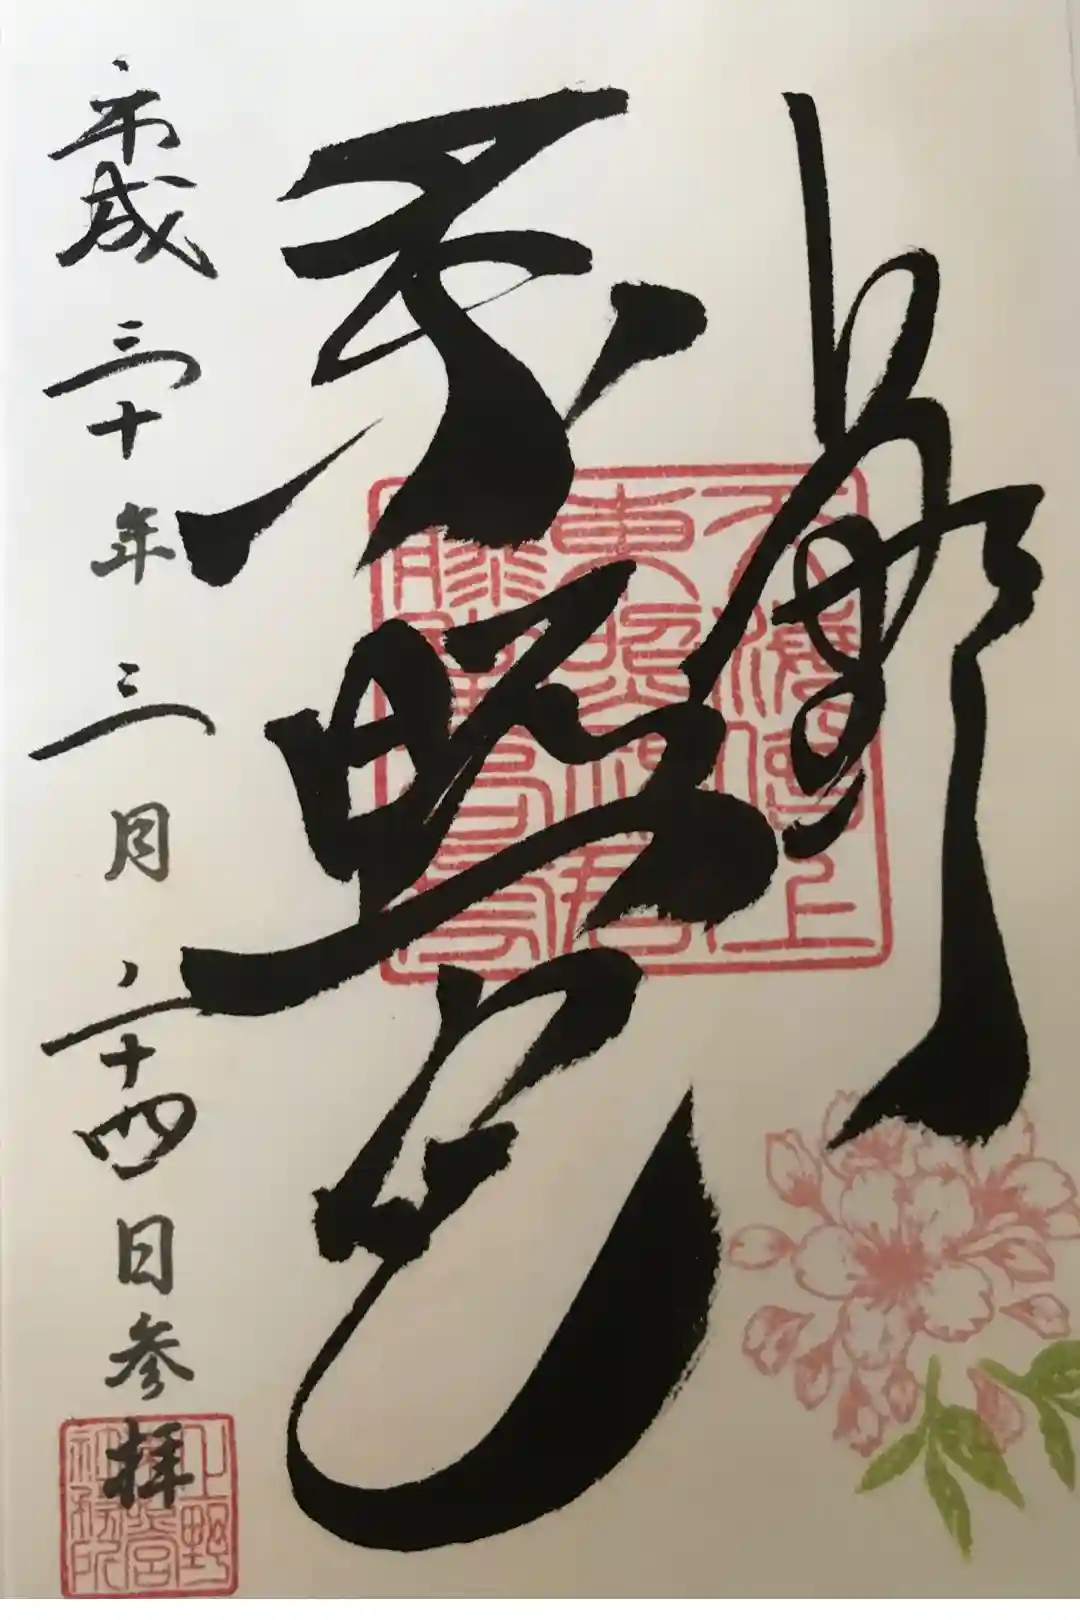 上野
東照宮
平成三十年三月二十四日参拝
上野
東照宮
社務所